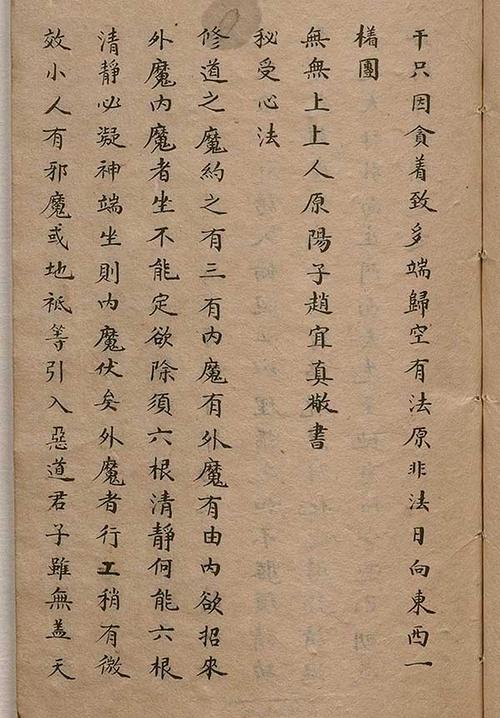 干只因貪着致多端歸空有法原非法日向東西一
樣團
無無上上人原陽子趙宜真敬書
秘受心法
修道之魔約之有三有內魔有外魔有由內欲招來
外魔內魔者坐不能定欲除須六根清靜何能六根
清靜必凝神端坐則內魔伏矣外魔者行工稍有微
效小人有邪魔或地祇等引入惡道君子雖無蓋天